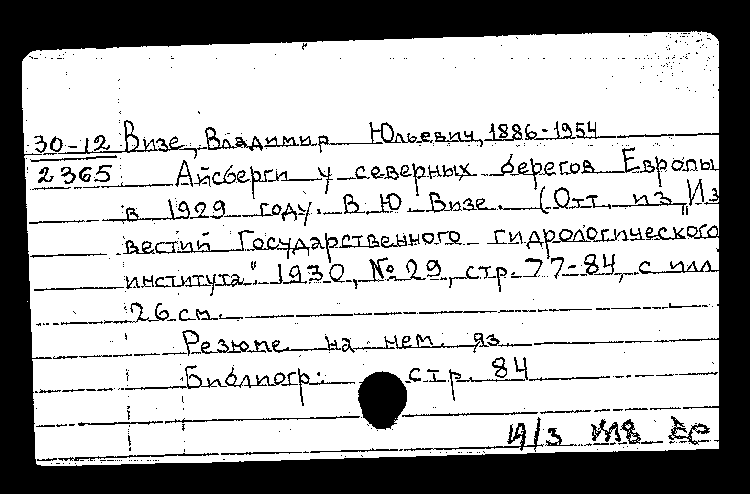 30-12 Визе, Владимир Юльевич, 1886-1954
2365 Айсберги у северных берегов Европы
в 1929 году. В. Ю. Визе. (Отт. из "Из
вестий Государственного гидрологического
института". 1930, № 29, стр. 77-84, с илл
26 см.
Резюме на нем. яз.
Библиогр: стр. 84
19/3